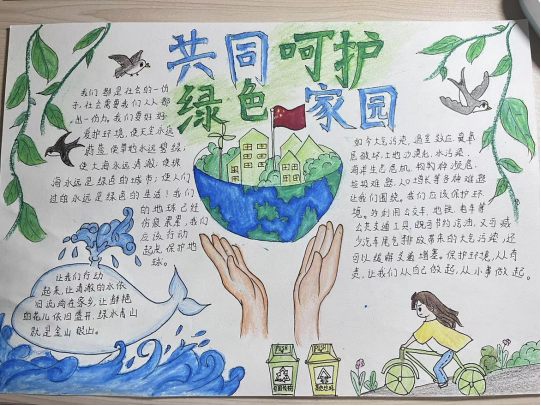 共同呵护
绿色家园
我们都是社会的一份
子,社会需要我们人人都
出一份力。我们要好好
爱护环境,使天空永远
蔚蓝,使草地永远碧绿,
使大海永远清澈,使珠
海永远是绿色的城市,使人们
过的永远是绿色的生活!我们
的地球已经
伤痕累累,我们
应该行动
起来,保护地
球。
如今大气污染,温室效应,臭氧
层破坏,土地沙漠化,水污染,
海洋生态危机,物种灭绝,
垃圾难题,人口增长等各种难题
让我们困扰。我们应该保护环
境。多利用公交车、地铁、电车等
公共交通工具,既可节约汽油,又可减
少汽车尾气排放带来的大气污染,还
可以缓解交通堵塞。保护环境,从有
责,让我们从自己做起,从小事做起。
让我们行动
起来,让清澈的水依
旧流淌在家乡,让鲜艳
的花儿依旧盛开,绿水青山
就是金山银山。